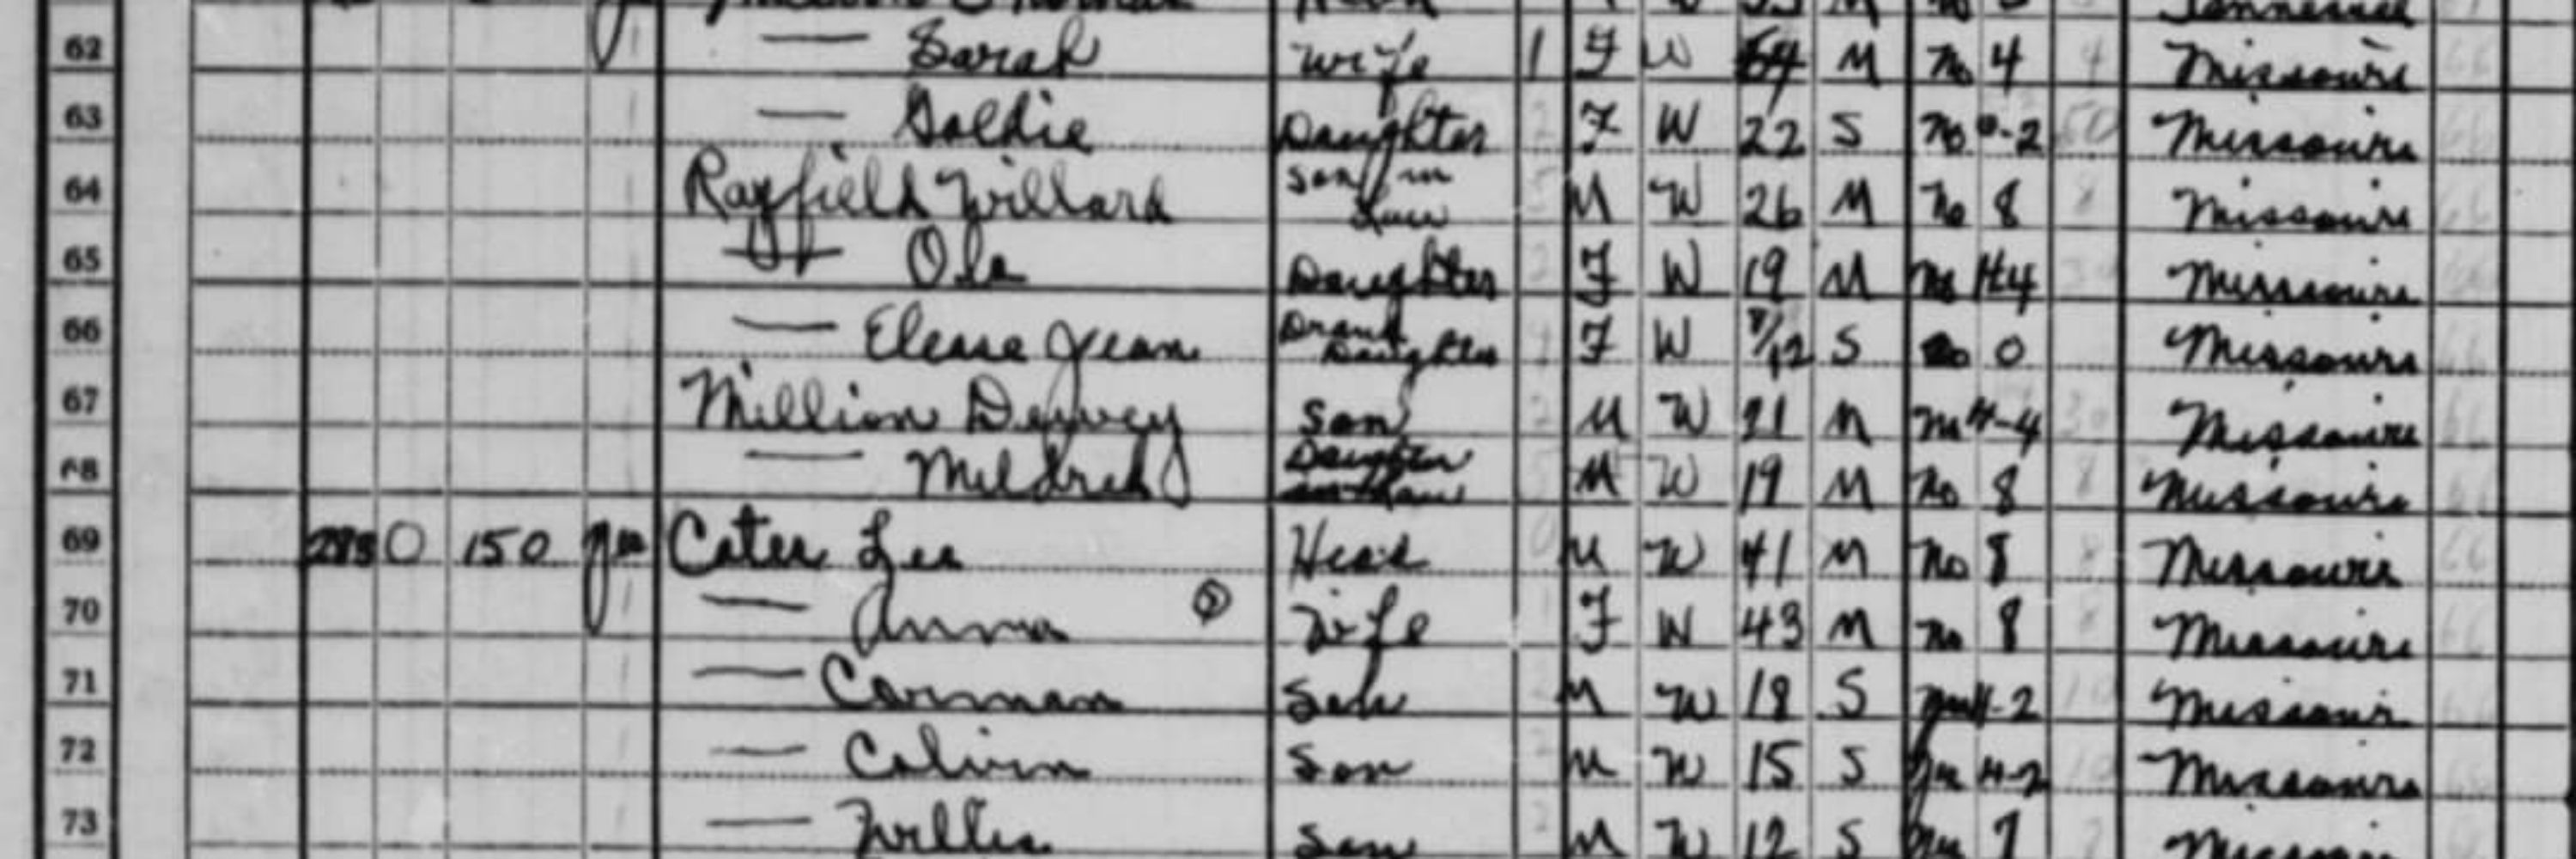 Tennessee
62 — Sarah Wife 1 F W 64 M No 4 4 Missouri
63 — Goldie Daughter 2 F W 22 S No -2 Missouri
64 Rayfield Willard Son in Law M W 26 M No 8 8 Missouri
65 — Ola Daughter 2 F W 19 M No H4 30 Missouri
66 — Jean Grand Daughter F W /12 S No 0 Missouri
67 Million Dewey Son 2 M W 21 M No H-4 30 Missouri
68 — Mildred Daughter in Law M W 19 M No 8 8 Missouri
69 O 150 Cater Lee Head 0 M W 41 M No 8 8 Missouri
70 — Anna Wife 1 F W 43 M No 8 8 Missouri
71 — Carman Son M W 18 S H-2 10 Missouri
72 — Calvin Son M W 15 S H-2 10 Missouri
73 — Willis Son M W 12 S 7 7